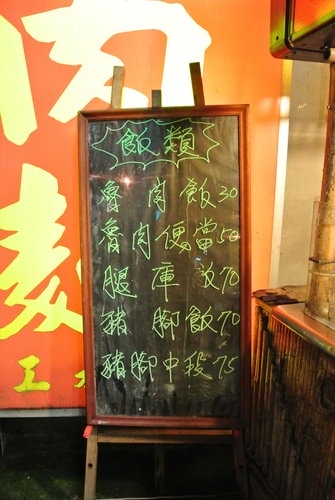 肉
麦
工
飯類
魯肉飯30
魯肉便當50
腿庫飯70
豬腳飯70
豬腳中段75